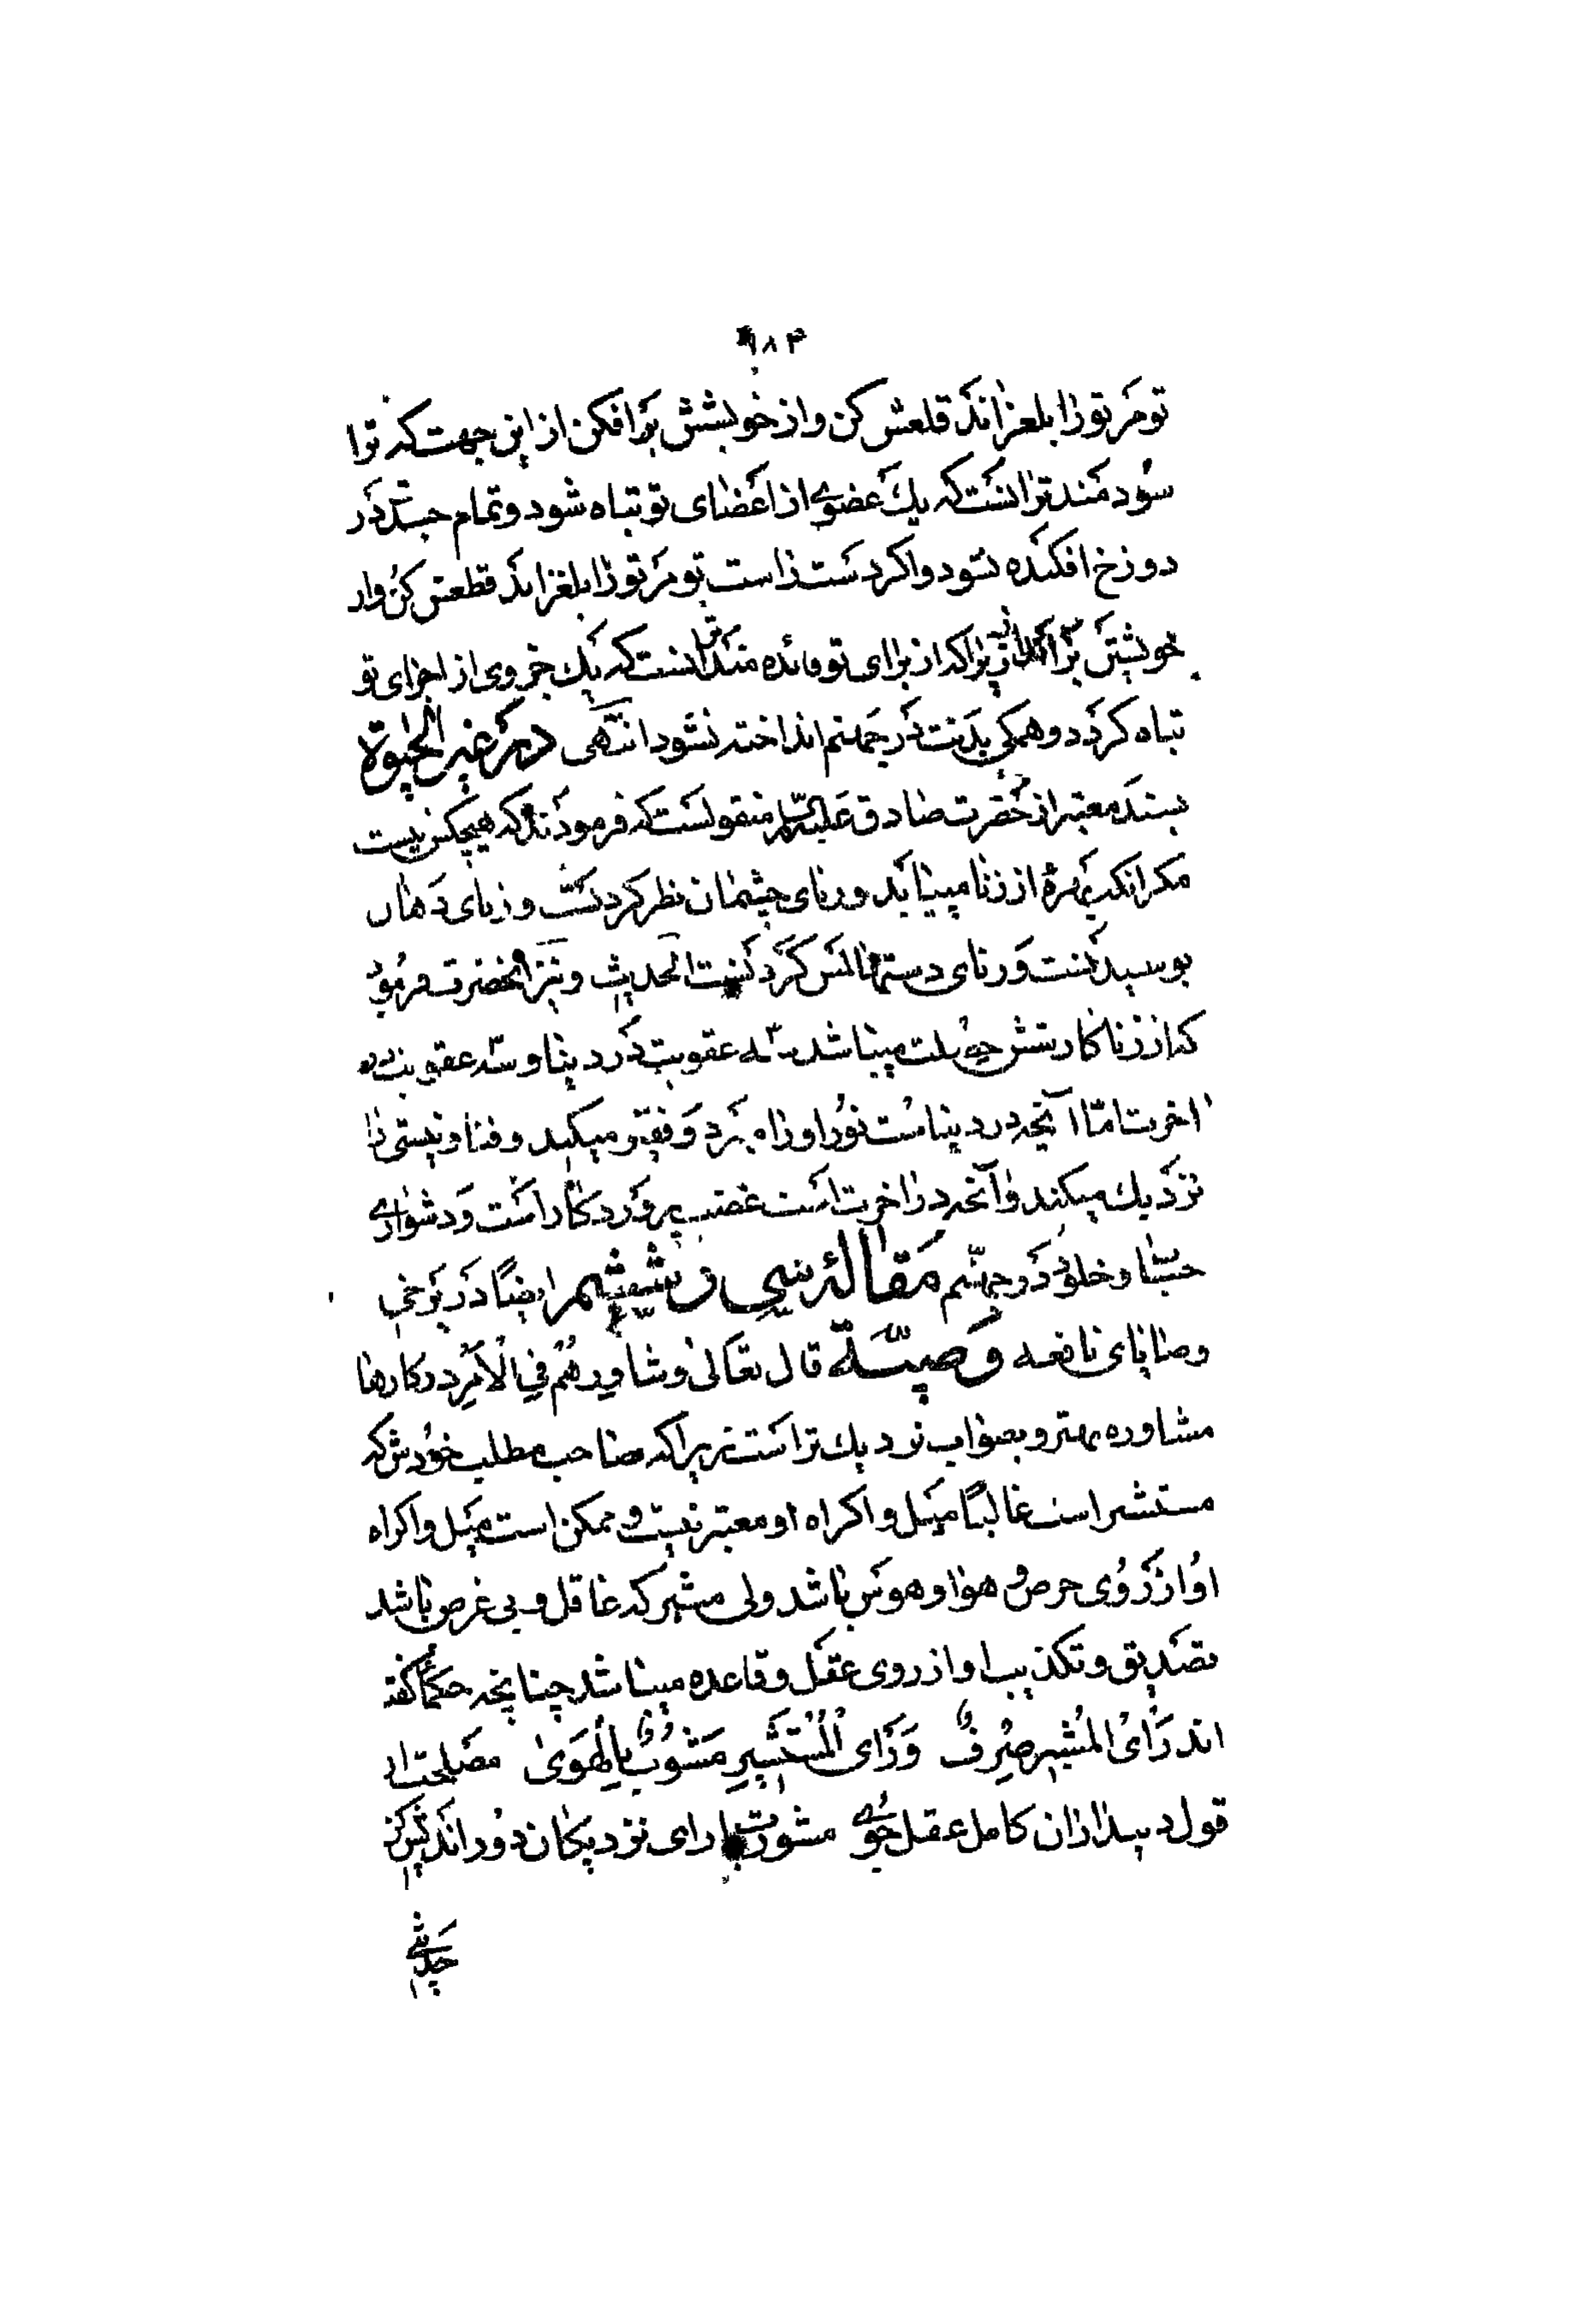 ۱۸۳
تو مر تو را بلغزاند قلعش کن و از خویشش برافکن از این جهت که ترا
سودمند تر است که یک عضوی از اعضای تو تباه شود و تمام جسدت در
دوزخ افکنده نشود و اگر دست راست تو مر تو را بلغزاند قطعش کن و از
خویشتن زیرا که از برای تو فائده مند است که یک جزوی از اجزای تو
تباه گردد و همگی بدنت در جهنم انداخته نشود انتهی در عین الحیوة
بسند معتبر از حضرت صادق علیه السلام منقولست که فرمودند که هیچکس نیست
مگر آنکه بهرهٔ از زنا مییابد و زنای چشمان نظر کردنست و زنای دهان
بوسیدنست و زنای دستها لمس کردنست الحدیث و نیز آنحضرت فرمود
که از زنا کار شش خصلت میباشد سه عقوبت در دنیا و سه عقوبت در
آخرت اما آنچه در دنیاست نور او را میبرد و فقیر میکند و فنا و نیستی را
نزدیک میکند و آنچه در آخرت است غضب پروردگار است و دشواری
حساب و خلود در جهنم مقاله سی و ششم ایضًا در برخی
وصایای نافعه وَصیّة قال تعالی و شاورهُم فی الْاَمْرِ در کارها
مشاوره بهتر و بصواب نزدیک تر است زیرا که صاحب مطلب خودش که
مستشیر است غالبًا میل و اکراه او معتبر نیست و ممکن است میل و اکراه
او از روی حرص و هوا و هوس باشد ولی مشیر که عاقل و بی غرض باشد
تصدیق و تکذیب او از روی عقل و قاعده میباشد چنانچه حکما گفته
اند رَایُ المُشیرِ صِرفٌ وَ رَایُ الْمُسْتَشیرِ مَشوُبٌ بِالْهَوی مصلحت از
قول دینداران کامل عقل جوی مشورت با رای نزدیکان دوراندیش کن
حدیثی